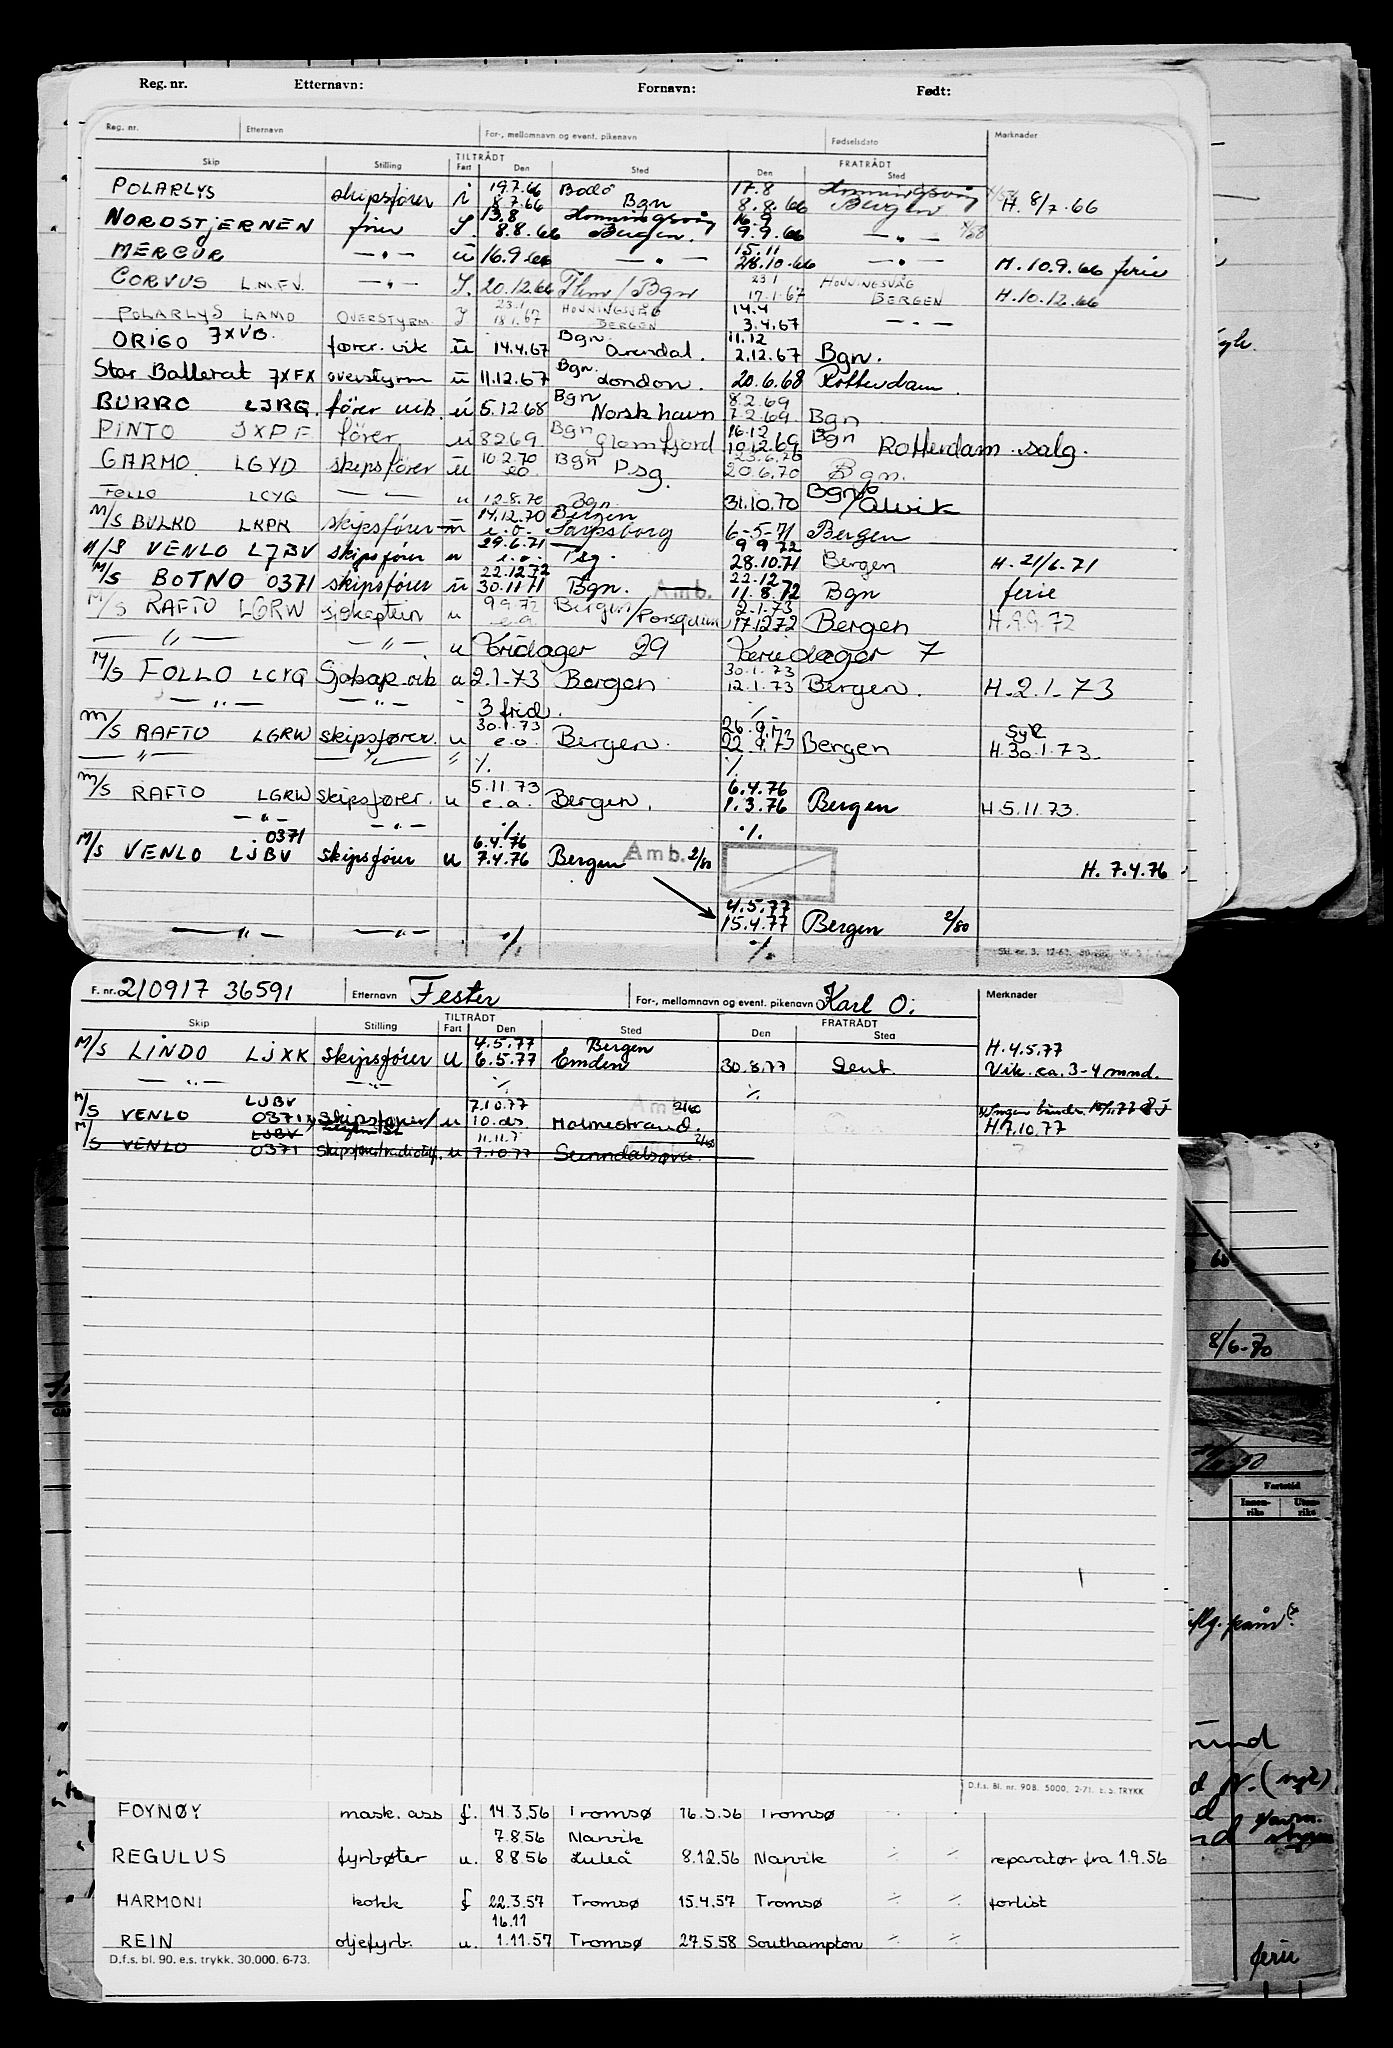 Reg. nr. Etternavn: Fornavn: Født:
Reg. nr. Etternavn For-, mellomnavn og event. pikenavn Fødselsdato Merknader
TILTRÅDT FRATRÅDT
Skip Stilling Fart Den Sted Den Sted
19.7.66 Bodö 17.8 Honningsvåg
POLARLYS skipsfører i 8.7.66 Bgn 8.8.66 Bergen H. 8/7.66
13.8 Honningsvåg 16.9
NORDSTJERNEN fører I. 8.8.66 Bergen. 9.9.66 — " —
15.11
MERCUR — " — u 16.9.66 — " — 28.10.66 — " — H. 10.9.66 ferie
23.1 HONNINGSVÅG
CORVUS L.M.F.V. — " — I. 20.12.66 Thm / Bgn 17.1.67 BERGEN H. 10.12.66
23.1 HONNINGSVÅG 14.4
POLARLYS LAMD OVERSTYRM I 18.1.67 BERGEN 3.4.67 — " —
Bgn. 11.12
ORIGO JXVB. fører. vik u 14.4.67 Arendal. 2.12.67 Bgn.
Bgn.
Star Ballerat JXFX overstyrm u 11.12.67 London. 20.6.68 Rotterdam.
Bgn 8.2.69
BURRO LJRG. fører vik. u 5.12.68 Norsk havn 7.2.69 Bgn
Bgn 16.12 Bgn
PINTO JXPF fører. u 8.2.69. Glomfjord 10.12.69 Rotterdam. salg.
10.2.70 Bgn 23.6.70
GARMO. LGYD skipsfører u e.o. Psg. 20.6.70 Bgn.
12.8.70 Bgn
FOLLO LCYG — " — u Bgn 31.10.70 /Ålvik
14.12.70 Bergen
M/S BULKO LKPK skipsfører u e.o. Sarpsborg 6-5-71 Bergen
29.6.71 9.9.72
M/S VENLO LJBV skipsfører u e.o. Psg. 28.10.71 Bergen H. 21/6.71
22.12.72 22.12
M/S BOTNO 0371 skipsfører u 30.11.71 Bgn. Amb. 11.8.72 Bgn ferie
9.9.72 2.1.73
M/S RAFTO LGRW sjøkaptein u e.o. Bergen/Porsgrunn 17.12.72 Bergen H. 9.9.72
— " — — " — u Fridager 29 Feriedager 7
30.1.73
M/S FOLLO LCYG Sjøkap. vik u 2.1.73 Bergen 12.1.73 Bergen. H. 2.1.73
— " — — " — - 3 frid. ./.
30.1.73 26.9.73 Syk
M/S RAFTO LGRW skipsfører. u e.o. Bergen. 22.9.73 Bergen H. 30.1.73.
— " — — " — " ./. ./.
5.11.73 6.4.76
M/S RAFTO LGRW skipsfører. u e.o. Bergen. 1.3.76 Bergen H. 5.11.73.
— " — — " — ./. ./.
0371 6.4.76
M/S VENLO LJBV skipsfører u 7.4.76 Bergen Amb. 2/80 H. 7.4.76
4.5.77
15.4.77 Bergen 2/80
— " — — " — ./. ./.
F. nr. 210917 36591 Etternavn Fester For-, mellomnavn og event. pikenavn Karl O. Merknader
TILTRÅDT FRATRÅDT
Skip Stilling Fart Den Sted Den Sted
4.5.77 Bergen H. 4.5.77
M/S LINDO LJXK skipsfører u 6.5.77 Emden 30.8.77 Vik. ca. 3-4 mnd.
— " — — " — ./. ./.
LJBV 7.10.77 Amb. 2/80
M/S VENLO 0371 skipsfører/ u 10. ds Holmestrand. H. 7.10.77
LJBV 11.11.7 2/80
M/S VENLO 0371 u 7.10.77 Sunndalsøra.
D.f.s. Bl. nr. 90B. 5000, 2-71. E.S. TRYKK
FOYNØY mask. ass f. 14.3.56 Tromsø 16.5.56 Tromsø
7.8.56 Narvik
REGULUS fyrbøter u. 8.8.56 Luleå 8.12.56 Narvik reparatør fra 1.9.56
HARMONI kokk f 22.3.57 Tromsø 15.4.57 Tromsø forlist
16.11
REIN oljefyrb. u. 1.11.57 Tromsø 27.5.58 Southampton
D.f.s. bl. 90. e.s. trykk. 30.000. 6-73.
8/6-70
Fartstid
Innen-
riks
Uten-
riks
(syk)
ferie